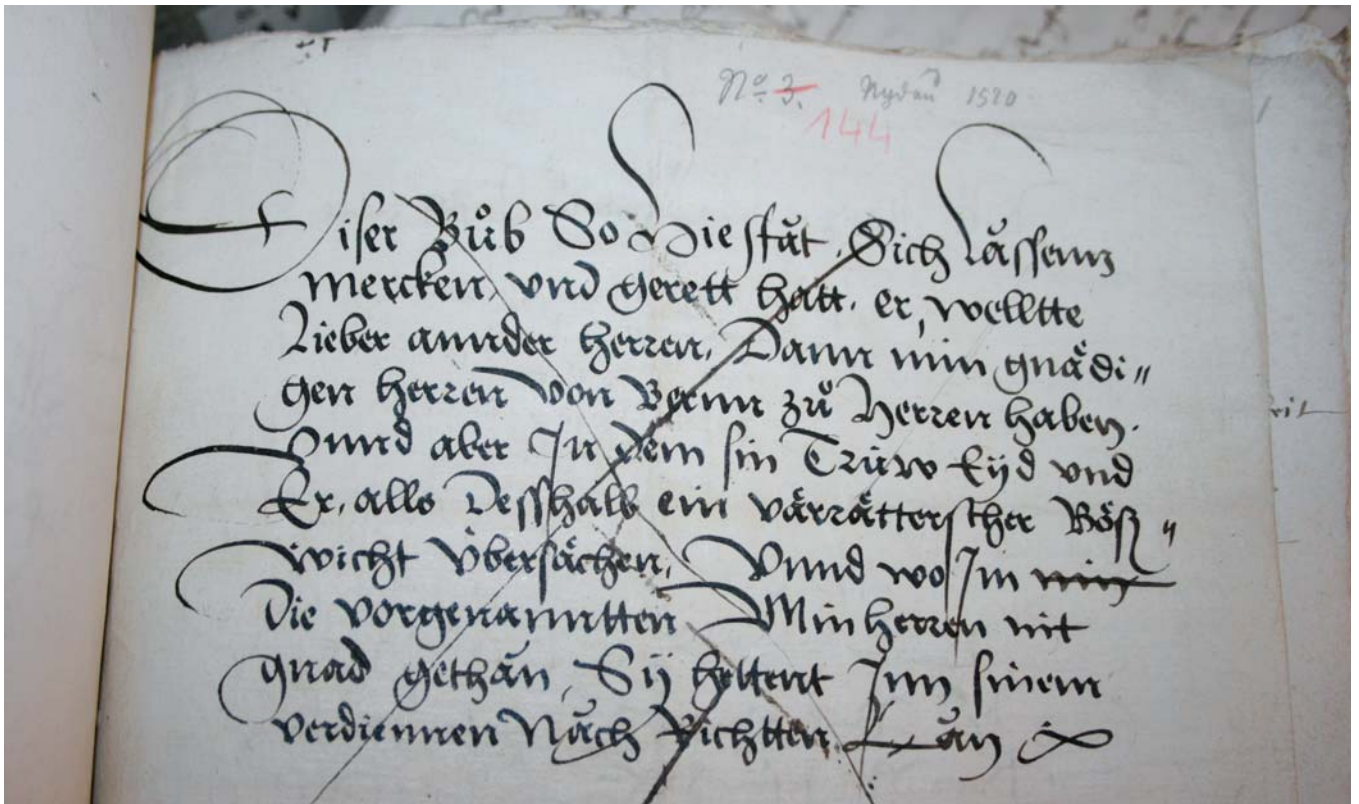 No. 3. Nydau 1520
144
Diser Bůb So Hie ståt, Sich Låssenn
Mercken, vnd gerett hatt. er, welltte
Lieber annder herren, Dann min gnädi〃
gen herren von Bernn zů Herren haben.
Vnnd aber In dem sin Trüw Eyd vnd
Er, alls Desshalb ein värrätterscher Böß〃
wicht Übersächen, Vnnd wo Im min
Die vorgenanntten Min herren nit
gnad gethån, Sy hettent Inn sinem
verdiennen Nåch Richtten Lån